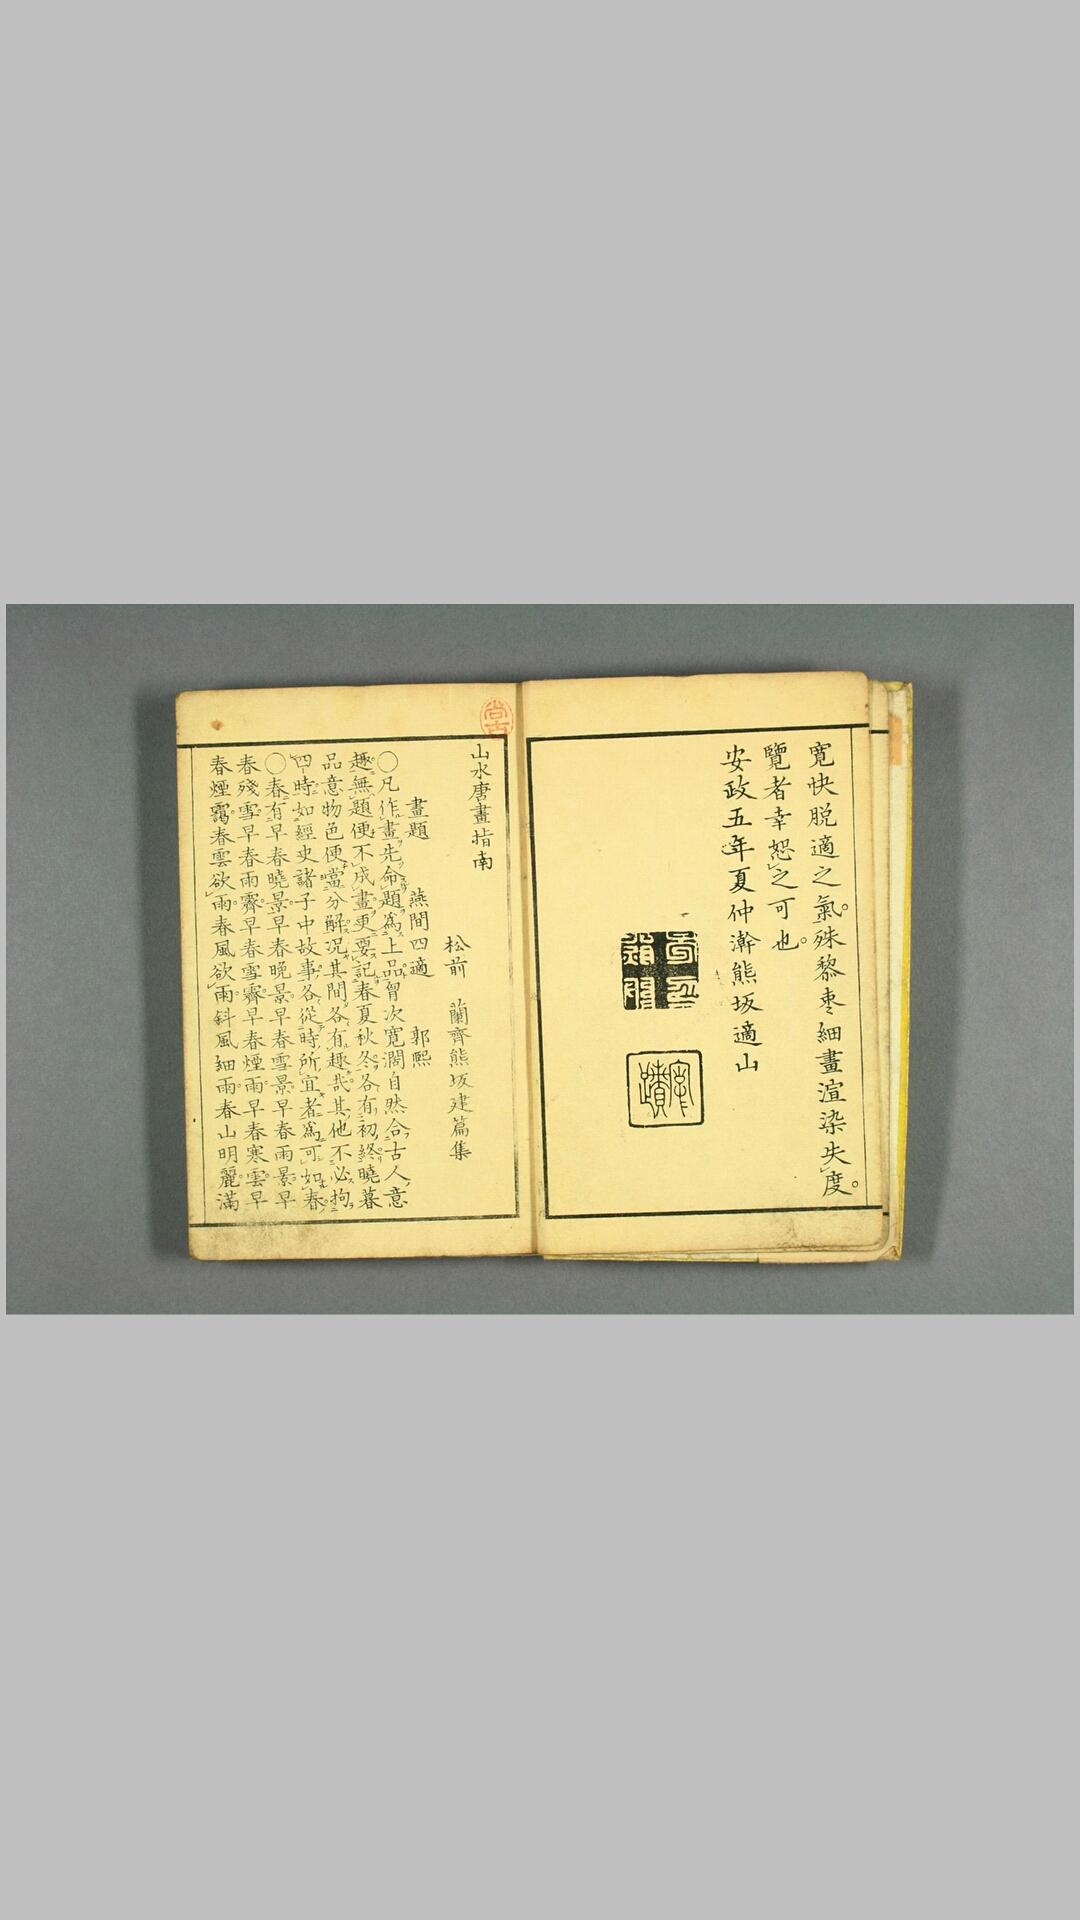 寛快脱適之氣。殊黎枣細畫渲染失度。
覽者幸恕之可也。
安政五年夏仲澣熊坂適山
尚古
山水唐畫指南
松前 蘭齊熊坂建篇集
畫題 燕間四適 郭熙
〇凡作畫先命題爲上品胷次寛濶自然合古人意
趣無題便不成畫更要記春夏秋冬各有初終曉暮
品意物色便當分解況其間各有趣哉其他不必拘
四時如經史諸子中故事各從時所宜者爲可如春
〇春有早春曉景早春晚景早春雪景早春雨景早
春殘雪早春雨霽早春雪霽早春煙雨早春寒雲早
春煙靄春雲欲雨春風欲雨斜風細雨春山明麗滿